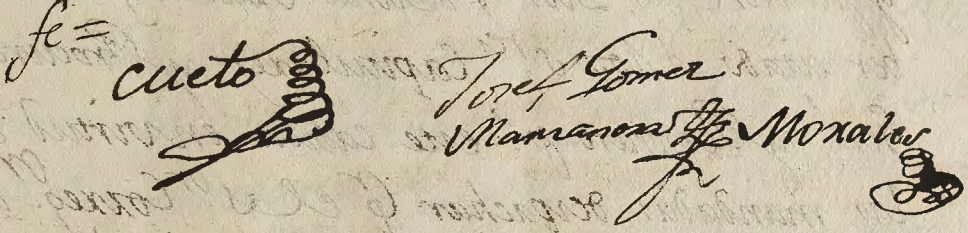 fe =
Cueto
Josef Gomez
Manzanosa Morales